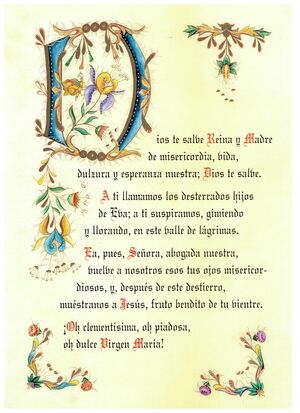 Dios te salve Reina y Madre
de misericordia, vida,
dulzura y esperanza nuestra; Dios te salve.
A ti llamamos los desterrados hijos
de Eva; a ti suspiramos, gimiendo
y llorando, en este valle de lágrimas.
Ea, pues, Señora, abogada nuestra,
vuelve a nosotros esos tus ojos misericor-
diosos, y, después de este destierro,
muéstranos a Jesús, fruto bendito de tu vientre.
¡Oh clementísima, oh piadosa,
oh dulce Virgen María!